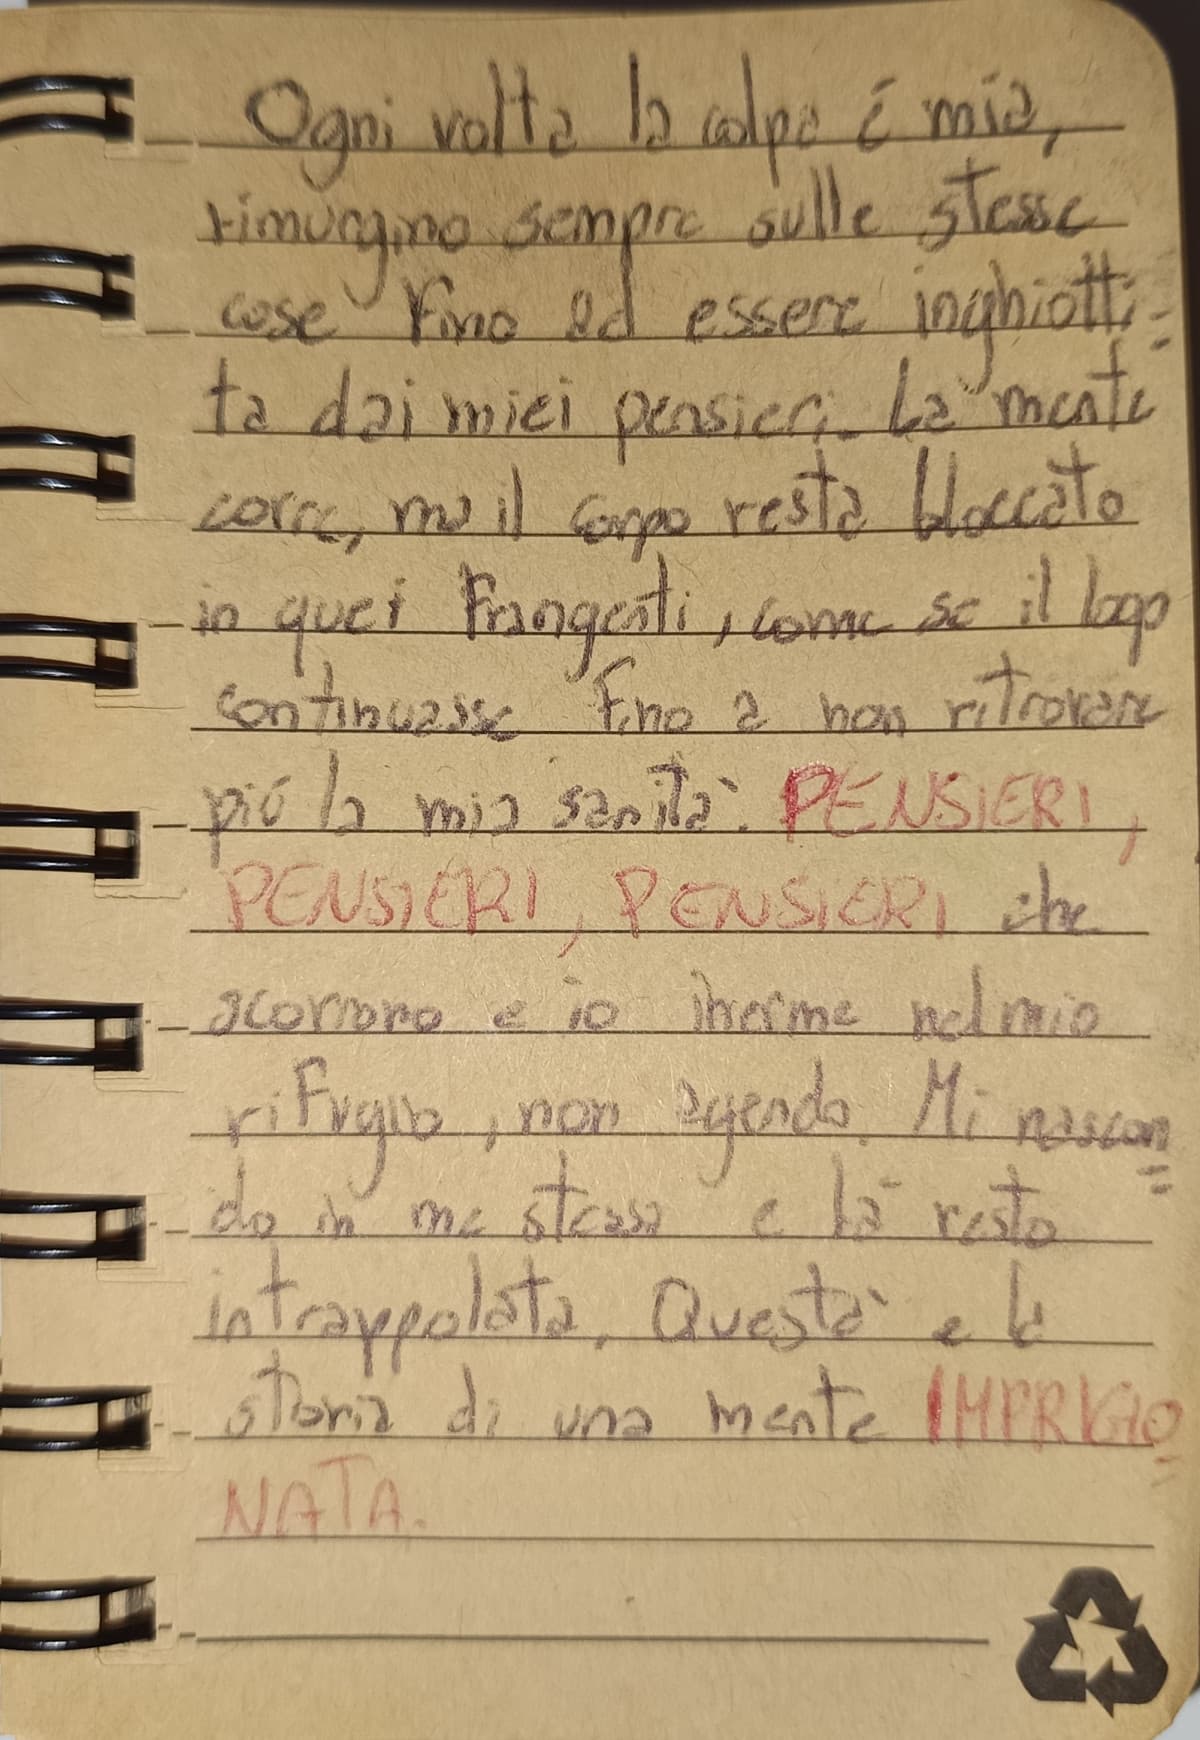 Ogni volta la colpa è mia,
rimurgino sempre sulle stesse
cose fino ad essere inghiotti=
ta dai miei pensieri. La mente
corre, ma il corpo resta bloccato
in quei frangenti, come se il logo
continuasse fino a non ritrovare
più la mia sanità. PENSIERI,
PENSIERI, PENSIERI che
scorrono e io inerme nel mio
rifugio, non agendo. Mi nascon=
do in me stessa e là resto
intrappolata. Questa è la
storia di una mente IMPRIGIO=
NATA.